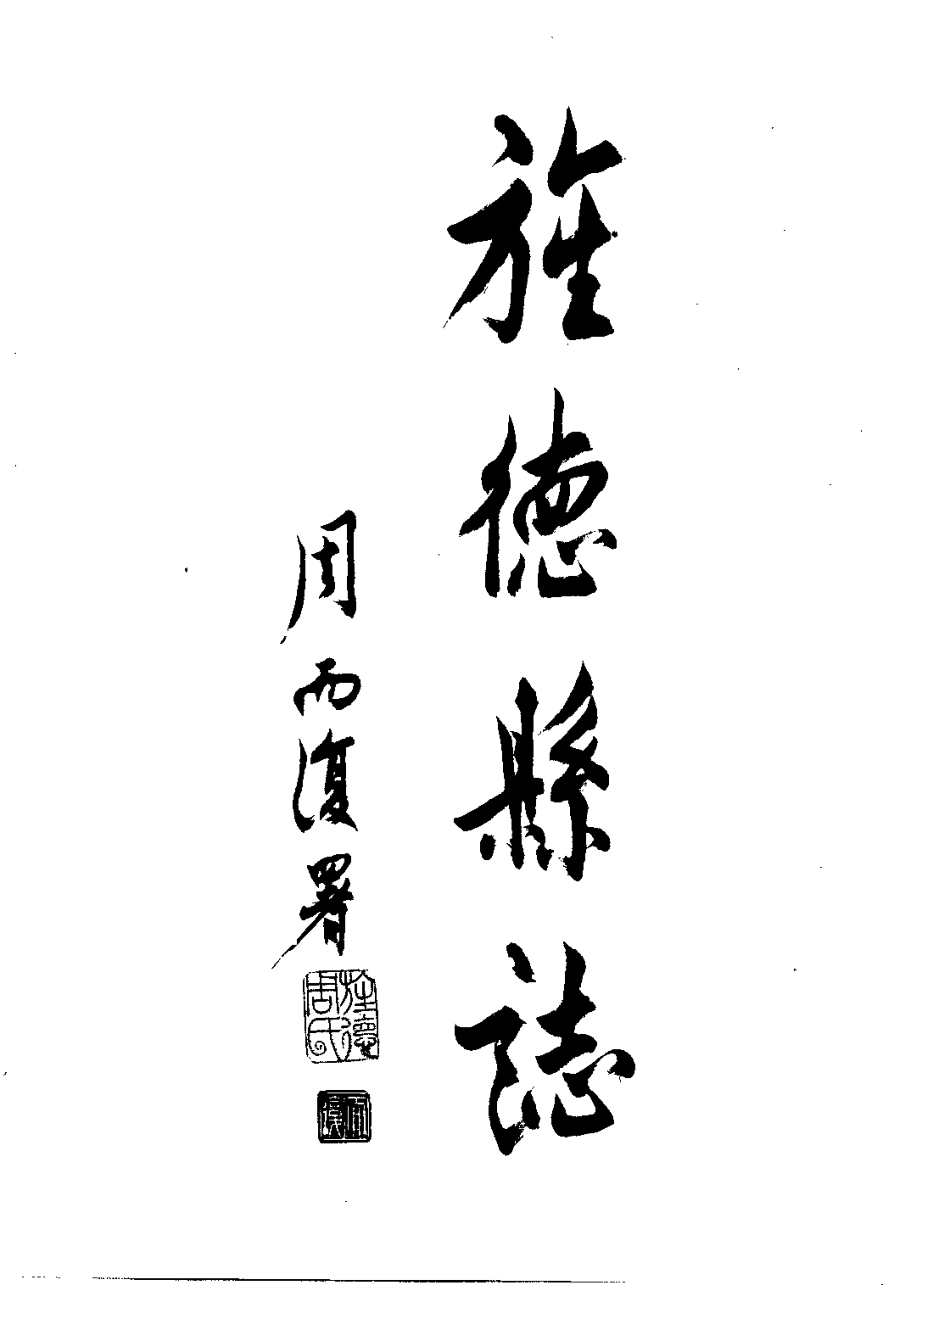 旌德縣誌
周而復署
旌德周氏
而復